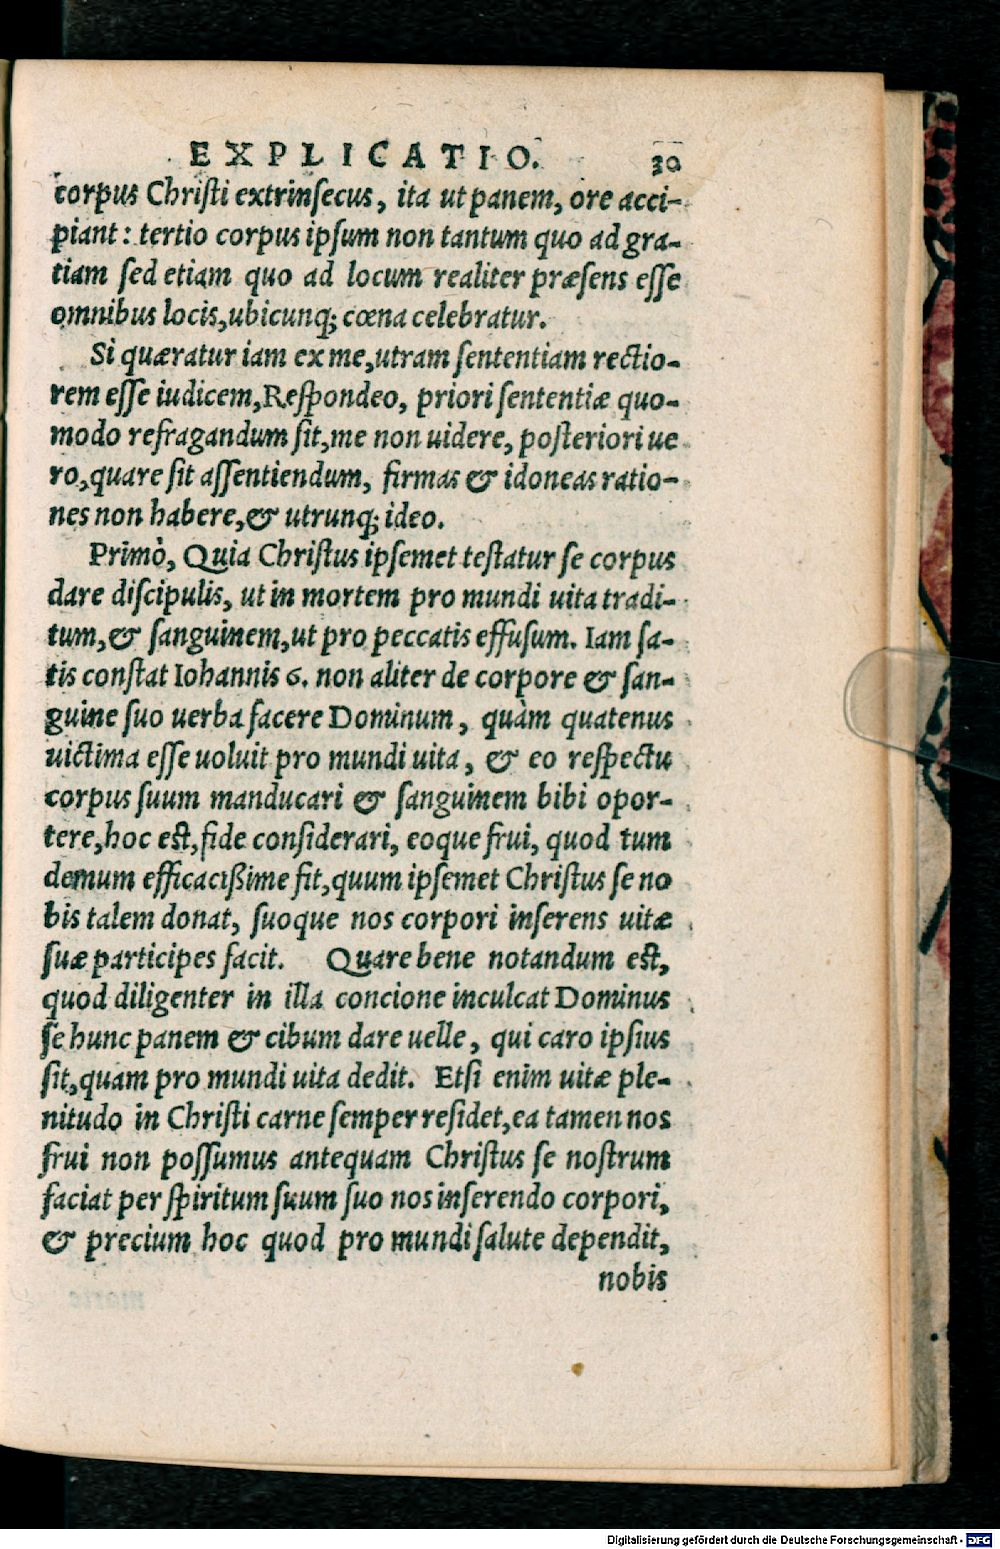 EXPLICATIO. 30
corpus Christi extrinsecus, ita ut panem, ore acci-
piant: tertio corpus ipsum non tantum quo ad gra-
tiam sed etiam quo ad locum realiter præsens esse
omnibus locis, ubicunq; cœna celebratur.
Si quæratur iam ex me, utram sententiam rectio-
rem esse iudicem, Respondeo, priori sententiæ quo-
modo refragandum sit, me non uidere, posteriori ue
ro, quare sit assentiendum, firmas & idoneas ratio-
nes non habere, & utrunq; ideo.
Primò, Quia Christus ipsemet testatur se corpus
dare discipulis, ut in mortem pro mundi uita tradi-
tum, & sanguinem, ut pro peccatis effusum. Iam sa-
tis constat Iohannis 6. non aliter de corpore & san-
guine suo uerba facere Dominum, quàm quatenus
uictima esse uoluit pro mundi uita, & eo respectu
corpus suum manducari & sanguinem bibi opor-
tere, hoc est, fide considerari, eoque frui, quod tum
demum efficacißime fit, quum ipsemet Christus se no
bis talem donat, suoque nos corpori inserens uitæ
suæ participes facit. Quare bene notandum est,
quod diligenter in illa concione inculcat Dominus
se hunc panem & cibum dare uelle, qui caro ipsius
sit, quam pro mundi uita dedit. Etsi enim uitæ ple-
nitudo in Christi carne semper residet, ea tamen nos
frui non possumus antequam Christus se nostrum
faciat per spiritum suum suo nos inserendo corpori,
& precium hoc quod pro mundi salute dependit,
nobis
Digitalisierung gefördert durch die Deutsche Forschungsgemeinschaft - DFG